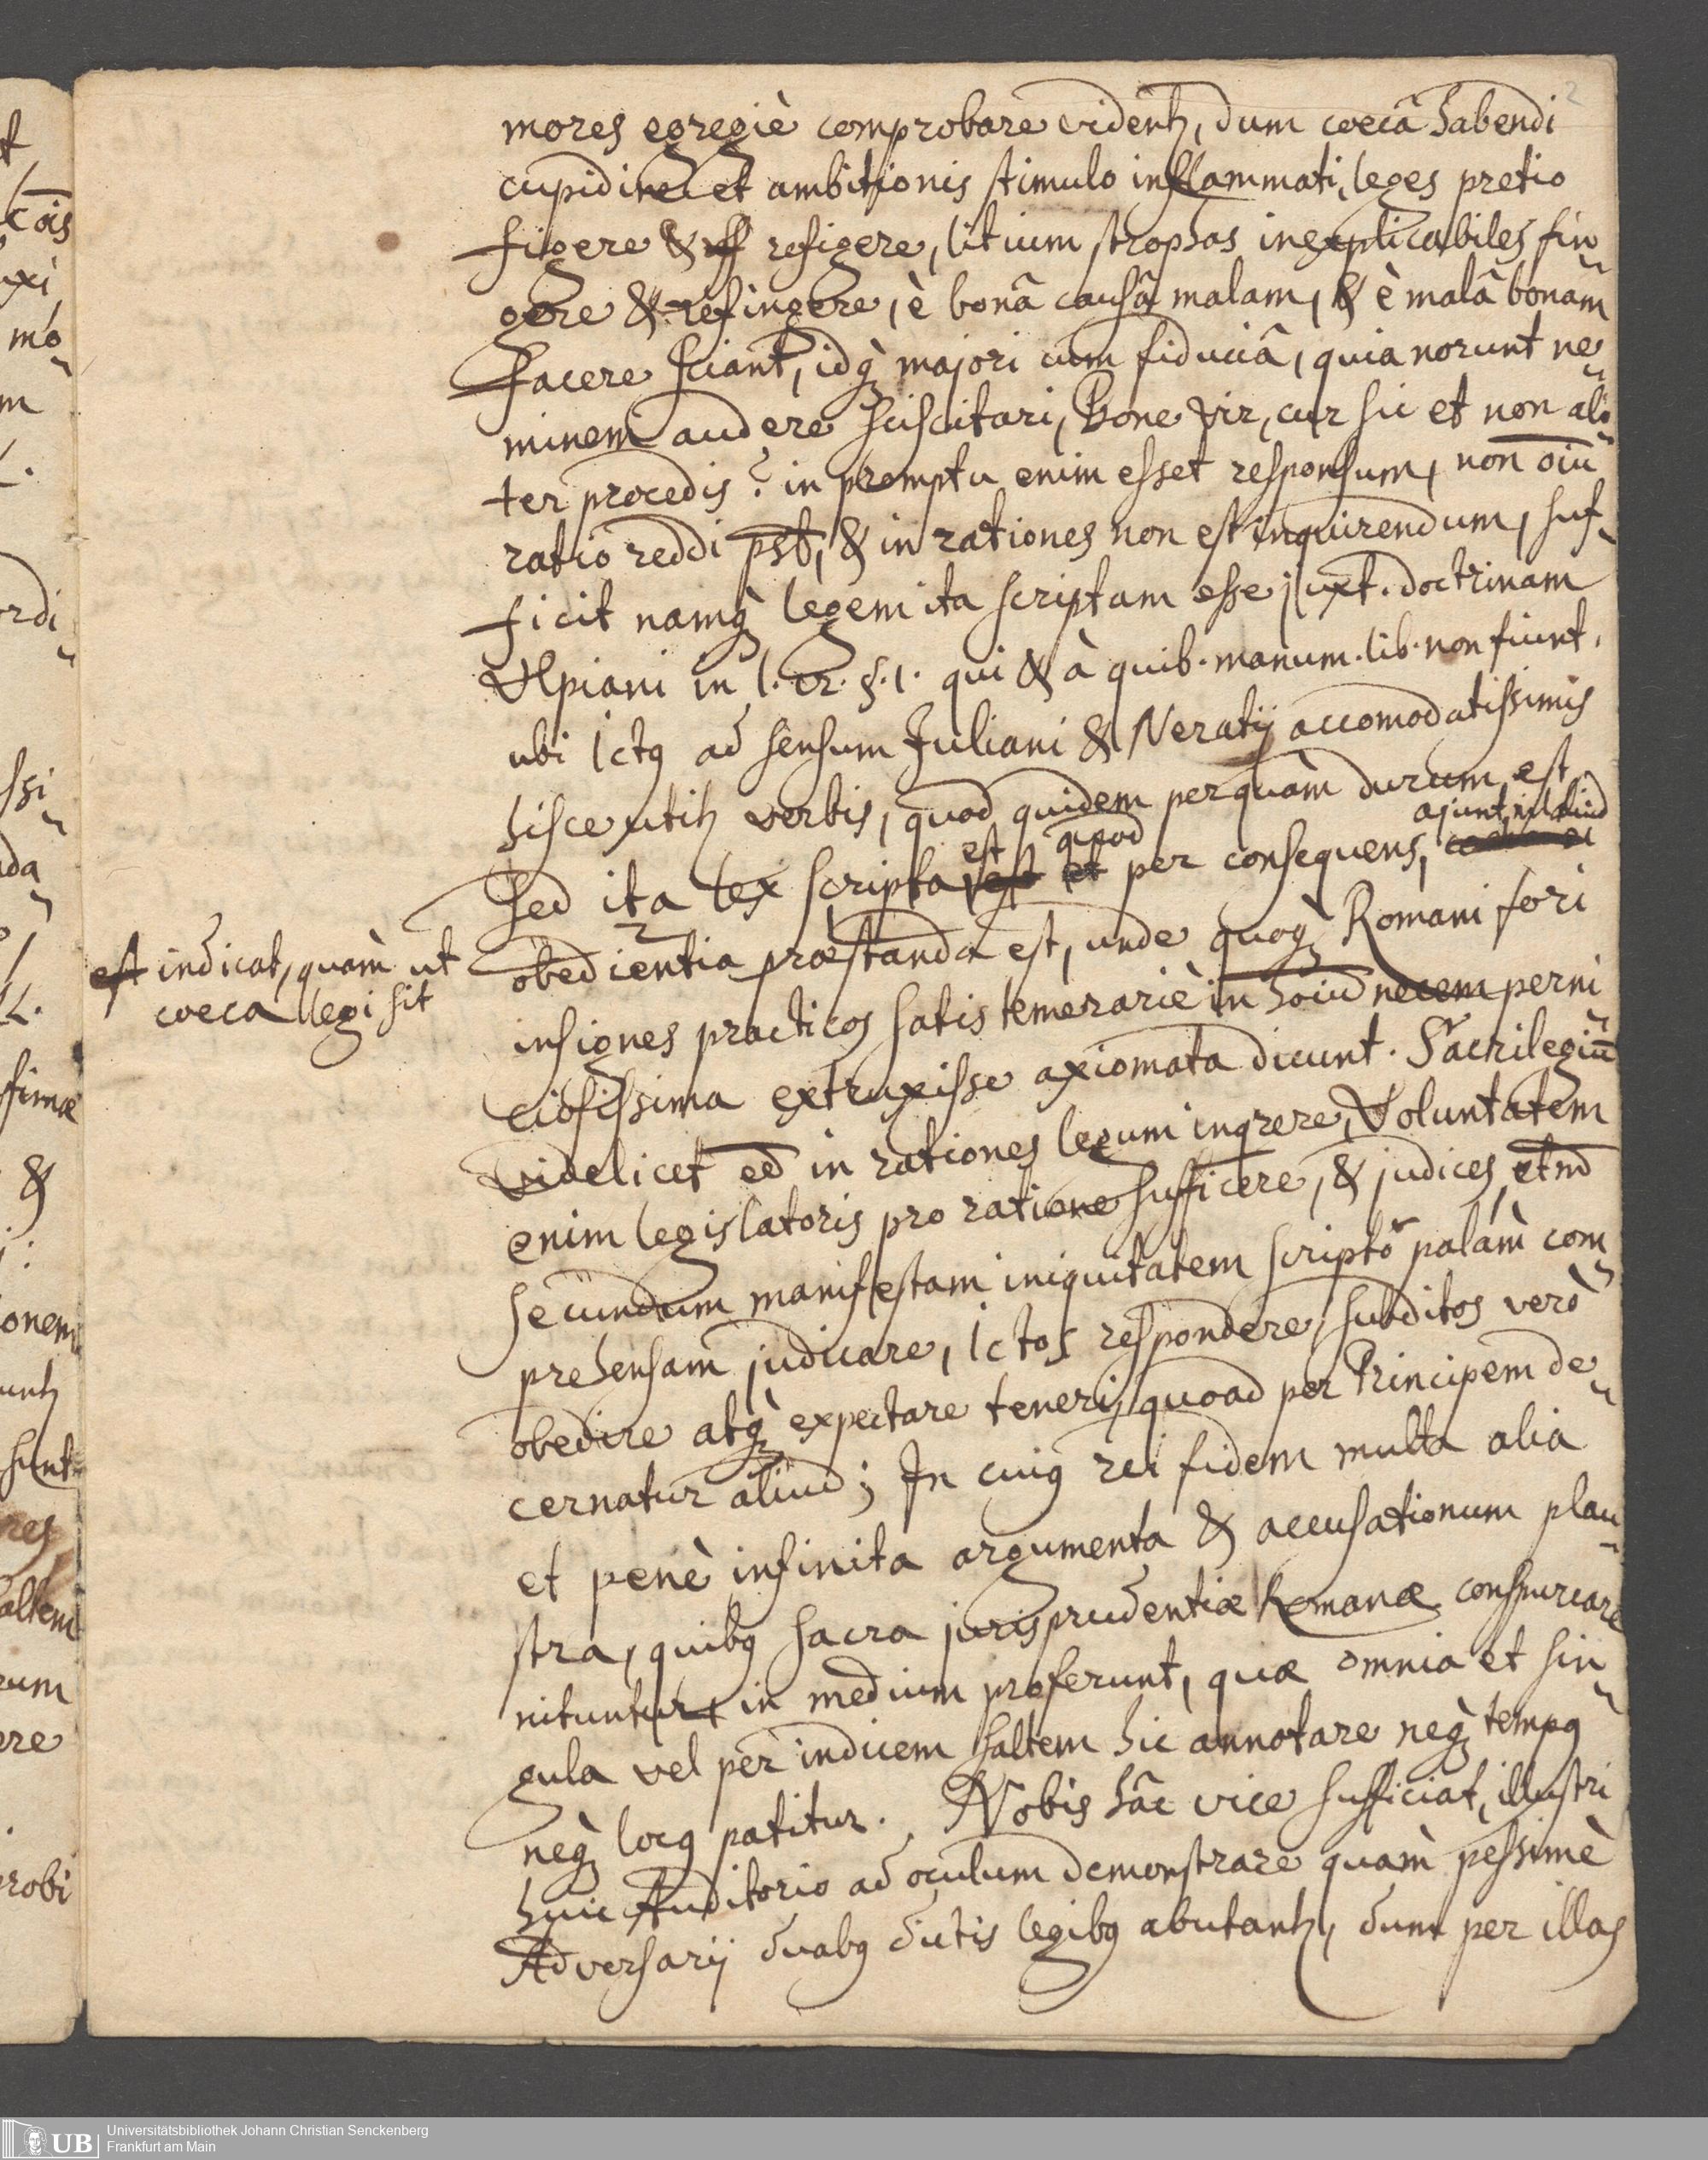 2
mores egregiè comprobare videntꝫ, dum coecâ habendi
cupidine et ambitionis stimulo inflammati, leges pretio
figere & refigere, litium strophas inexplicabiles fin„
gere & refingere, è bonâ causâ malam, & è malâ bonam
facere sciant, idqꝫ majori cum fiduciâ, quia norunt ne„
minem audere sciscitari, Bone vir, cur sic et non ali„
ter procedis? in promptu enim esset responsum, non oiũ
ratio reddi pst, & in rationes non est inquirendum, suf„
ficit namqꝫ legem ita scriptam esse juxt. doctrinam
Ulpiani in l. 12. §. 1. qui & à quib. manum. lib. non fiunt.
ubi Ictꝰ ad sensum Juliani & Neratij accomodatissimis
hisce utitꝫ verbis, quod quidem perquàm durum est
ajunt, nil aliud
est quod
sed ita lex scripta est et per consequens,
est indicat, quàm ut
coeca legi sit
obedientia præstanda est, unde quoqꝫ Romani fori
insignes practicos satis temerariè in hoiũ necem perni„
ciosissima extruxisse axiomata dicunt. Sacrilegiũ
videlicet eē in rationes legum inqrere, Voluntatem
enim legislatoris pro ratione sufficere, & judices, etm̄
secundum manifestam iniquitatem scripto palàm com„
prehensam judicare, Ictos respondere, subditos verò
obedire atqꝫ expectare teneri, quoad per Principem de„
cernatur aliud; In cuiꝰ rei fidem multa alia
et penè infinita argumenta & accusationum plau„
stra, quibꝰ sacra jurisprudentiæ Romanæ conspurcare
nituntur, in medium proferunt, quæ omnia et sin„
gula vel per indicem saltem hic annotare neqꝫ tempꝰ
neqꝫ locꝰ patitur. Nobis hâc vice sufficiat, illustri
huic Auditorio ad oculum demonstrare quàm pessimè
Adversarij duabꝰ dictis legibꝰ abutantꝫ, dum per illas
UB
Universitätsbibliothek Johann Christian Senckenberg
Frankfurt am Main